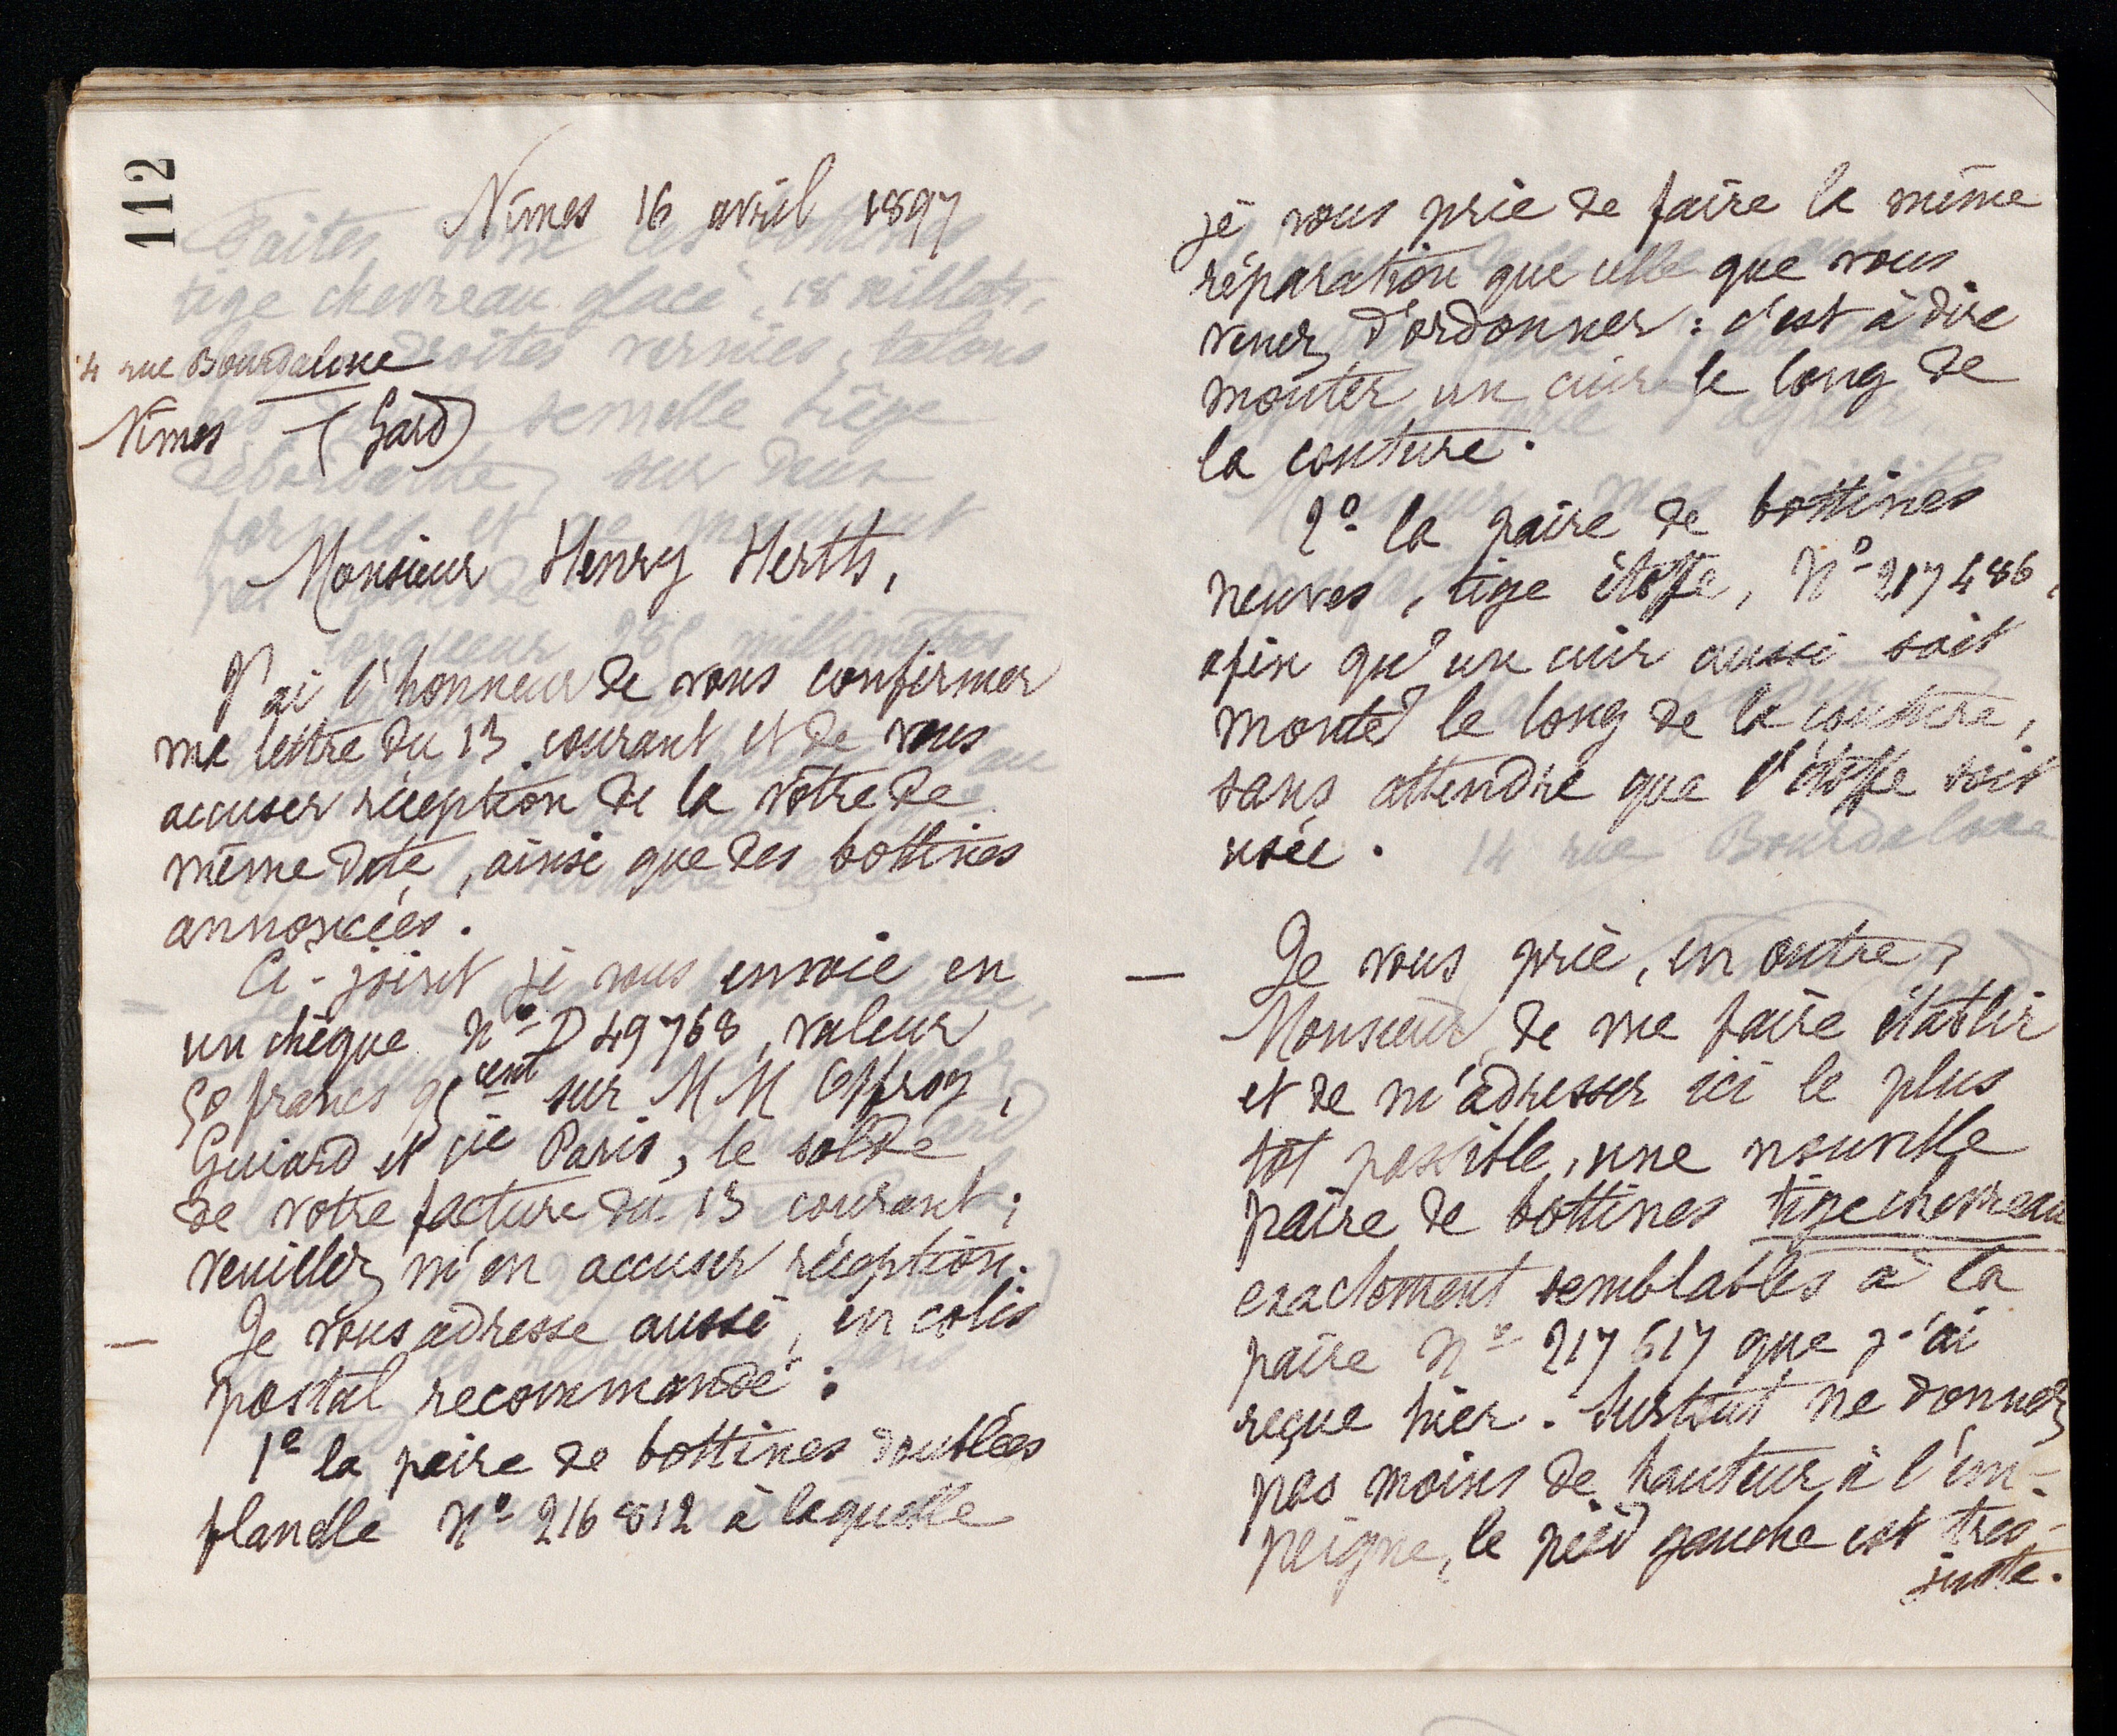 112
Nîmes 16 avril 1897
14 rue Bourdaloue
Nîmes (Gard)
Monsieur Henry Hertts,
J'ai l'honneur de vous confirmer
ma lettre du 13 courant et de vous
accuser réception de la vôtre de
même date, ainsi que des bottines
annoncées.
Ci-joint je vous envoie en
un chèque No D 49768, valeur
50 francs 95 cent sur MM Offroy,
Guiard et Cie Paris, le solde
de votre facture du 13 courant;
veuillez m'en accuser réception.
— Je vous adresse aussi, en colis
postal recommandé:
1o la paire de bottines doublées
flanelle No 216812 à laquelle
je vous prie de faire la même
réparation que celle que vous
venez d'ordonner: c'est à dire
monter un cuir le long de
la couture.
2o la paire de bottines
neuves, tige étoffe, No 217486,
afin qu'un cuir aussi soit
monté le long de la couture,
sans attendre que l'étoffe soit
usée.
— Je vous prie, en outre,
Monsieur, de me faire établir
et de m'adresser ici le plus
tôt possible, une nouvelle
paire de bottines tige chevreau
exactement semblables à la
paire No 217517 que j'ai
reçue hier. Surtout ne donnez
pas moins de hauteur à l'em-
peigne, le pied gauche est très-
juste.